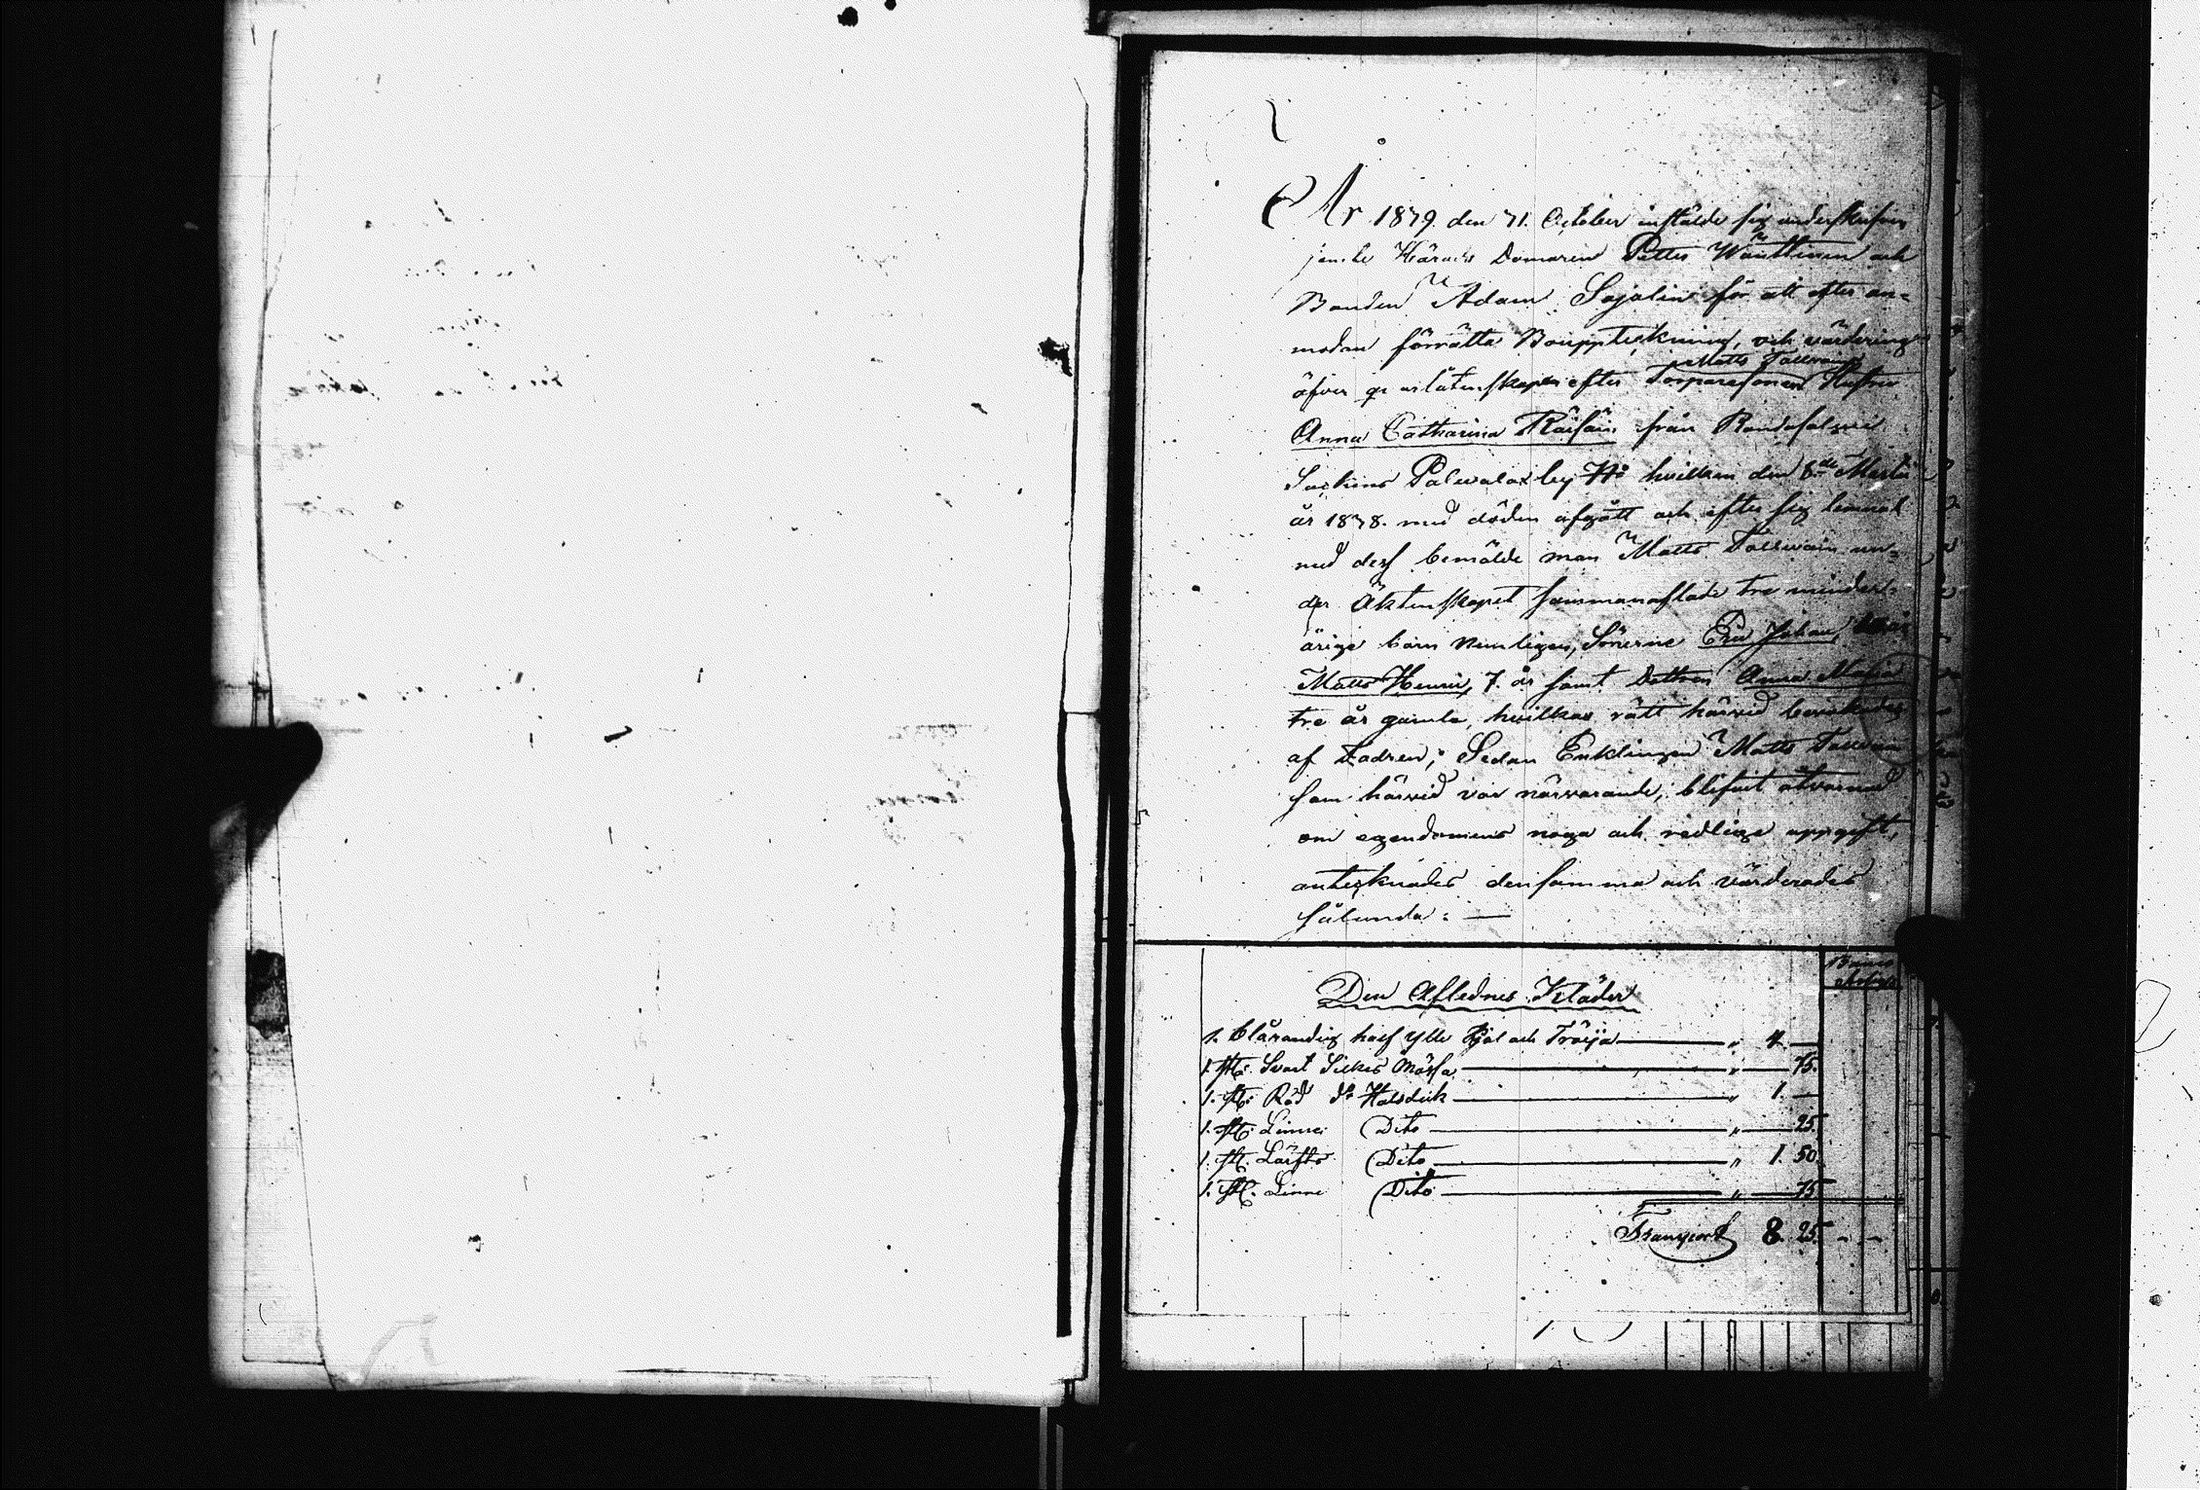 År 1879. den 31. October instälde sig undertecknad
jemte Härads Domaren Petter Wänttinen och
Bonden Adam Sajalin för att efter an=
modan förrätta Bouppteckning, och värdering
öfver qvarlåtenskapen efter Torparesonen Matts Tallvain Hustru
Anna Catharina Räisäin från Randasalmi
Sockens by hvilken den 8de Martii
år 1878. med döden afgått och efter sig lemnat
med dess bemälde man Matts Tallwain un=
der Äktenskapet sammanaflade tre minder=
årige barn Nemligen, Sönerne Eric Johan,
Matts Henric, 7. år samt Dottren Anna Maria
tre år gamla, hvilkas rätt härvid bevakades
af Fadren; Sedan Enklingen Matts Tallvain
som härvid var närvarande, blifvit åtvarnad
om egendomens noga och redliga uppgift,
antecknades densamma och värderades
sålunda: —
Den Aflednes Kläder
1. blårandig half ylle Kjol och Tröija — " 4. —
1. st: Svart Silkes Mössa — " — 75.
1. st: Röd do Halsduk — " 1. —
1. st: Linne Dito — " — 25.
1. st: Lärfts Dito — " 1. 50.
1. st: Linne Dito — " — 75
Transport 8. 25. - -